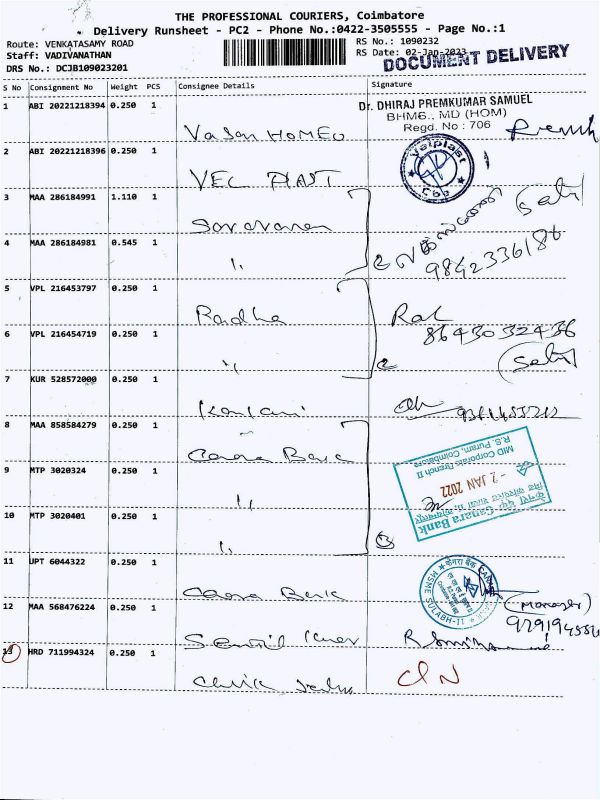 THE PROFESSIONAL COURIERS, Coimbatore
Delivery Runsheet - PC2 - Phone No.:0422-3505555 - Page No.:1
Route: VENKATASAMY ROAD
RS No.: 1090232
Staff: VADIVANATHAN
RS Date: 02-Jan-2023
DRS No.: DCJB109023201
DOCUMENT DELIVERY
S No Consignment No Weight PCS Consignee Details Signature
Dr. DHIRAJ PREMKUMAR SAMUEL
BHMS., MD (HOM)
Regd. No : 706
1 ABI 20221218394 0.250 1 Vasan HOMEO
2 ABI 20221218396 0.250 1 VEL PLAST
Velplast
CBE
3 MAA 286184991 1.110 1 Saravanan
4 MAA 286184981 0.545 1 "
9842336186
5 VPL 216453797 0.250 1 Radha
8643032436
6 VPL 216454719 0.250 1 "
7 KUR 528572000 0.250 1
8 MAA 858584279 0.250 1 Canara Bank
9 MTP 3020324 0.250 1 "
10 MTP 3020401 0.250 1 "
केनरा बैंक Canara Bank
- 2 JAN 2022
MID Corporate Branch II
R.S. Puram, Coimbatore
3
11 UPT 6044322 0.250 1 Canara Bank
केनरा बैंक CANARA
MSME SULABH-II
(Manager)
12 MAA 568476224 0.250 1 Senthil
13 HRD 711994324 0.250 1
C/N